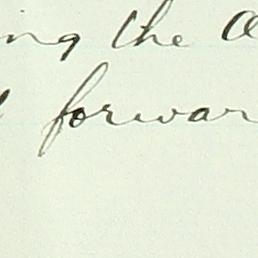 ing the
forwar